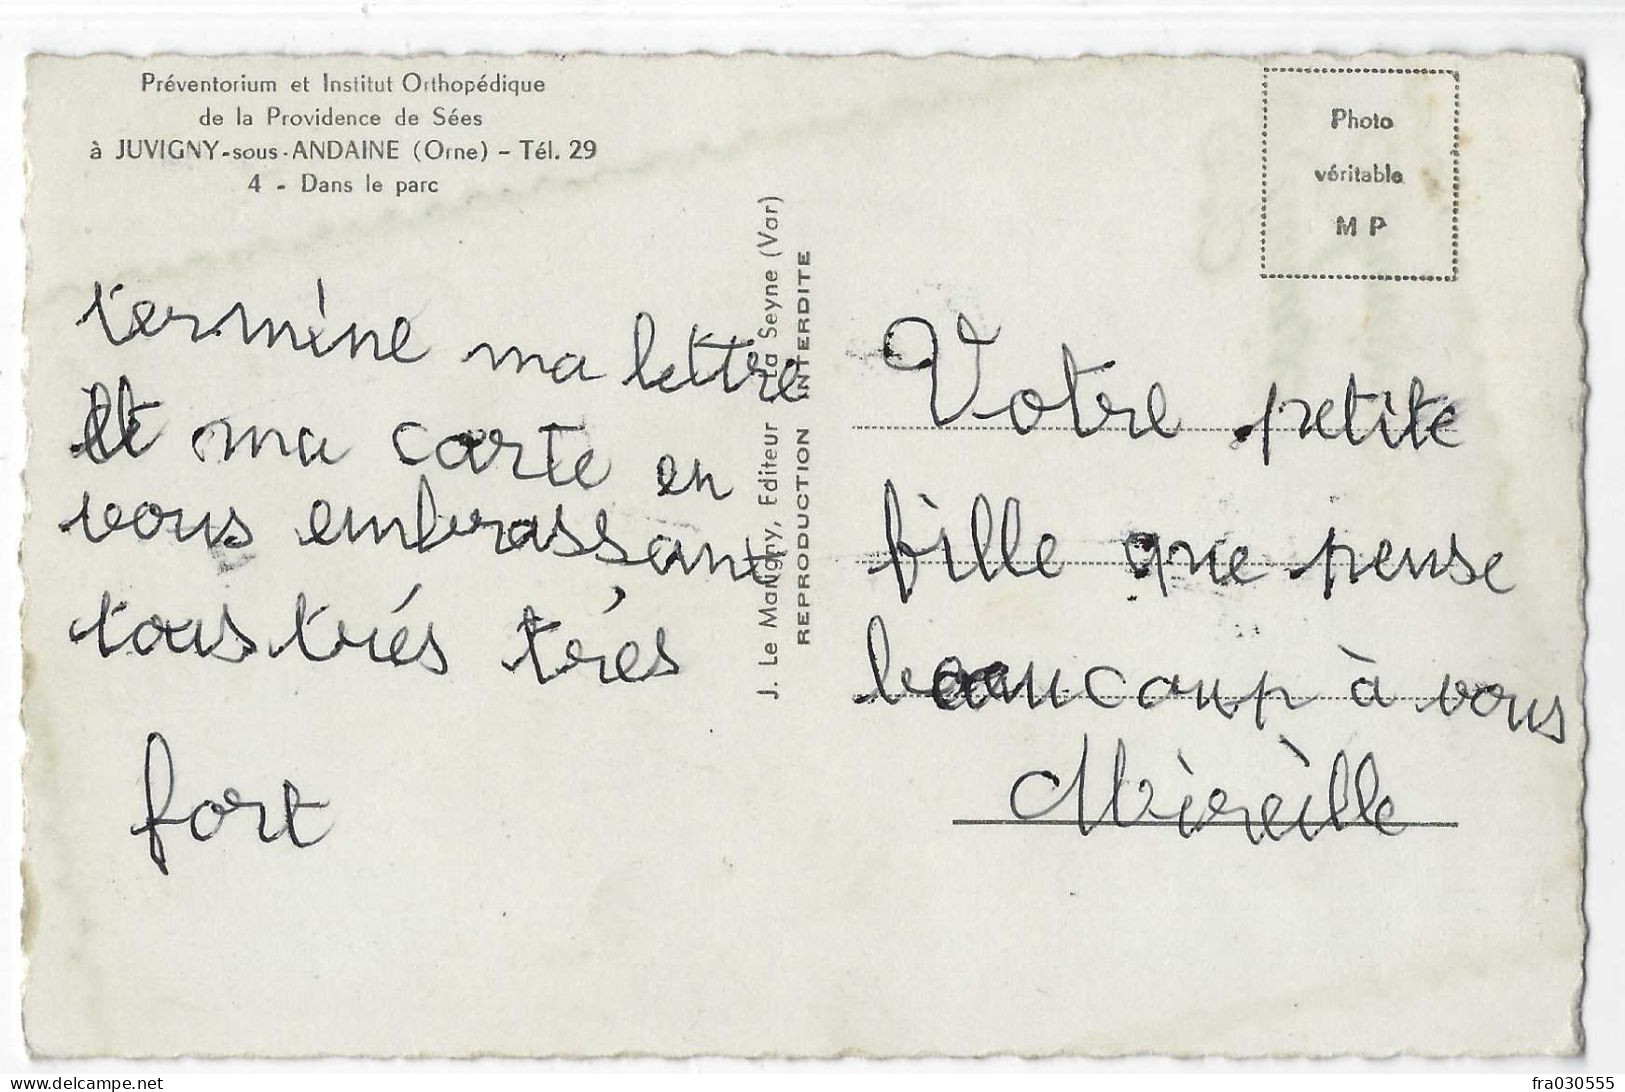 Préventorium et Institut Orthopédique
de la Providence de Sées
à JUVIGNY-sous-ANDAINE (Orne) – Tél. 29
4 - Dans le parc
Photo
véritable
M P
termine ma lettre
et ma carte en
vous embrassant
tous trés trés
fort
J. Le Marigny, Editeur - La Seyne (Var)
REPRODUCTION INTERDITE
Votre petite
fille que pense
beaucoup à vous
Mireille
delcampe.net
fra030555